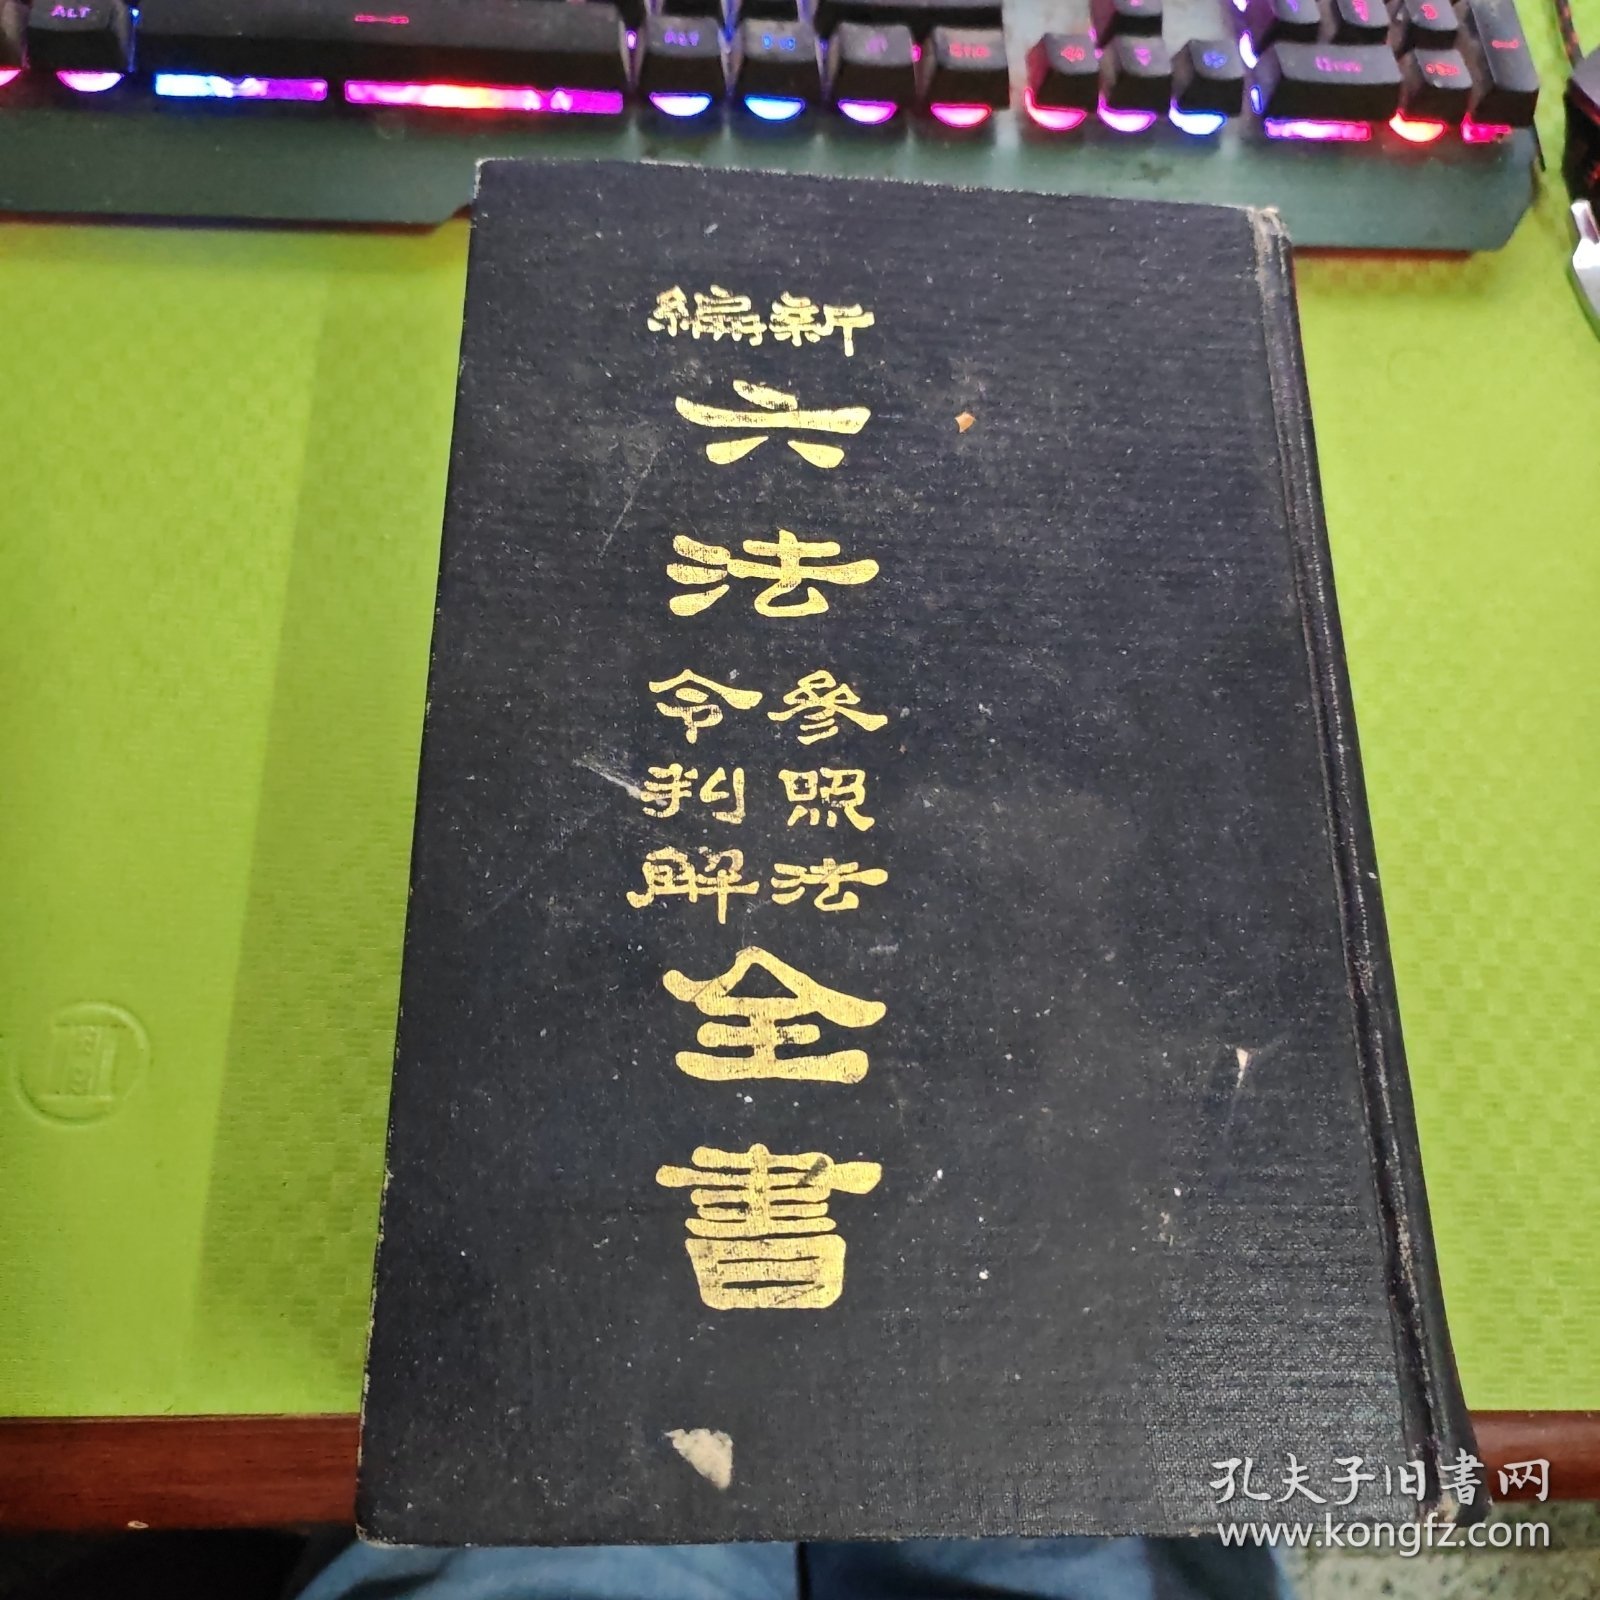 新編
六法
參照法
令判解
全書
ALT
孔夫子旧書网
www.kongfz.com